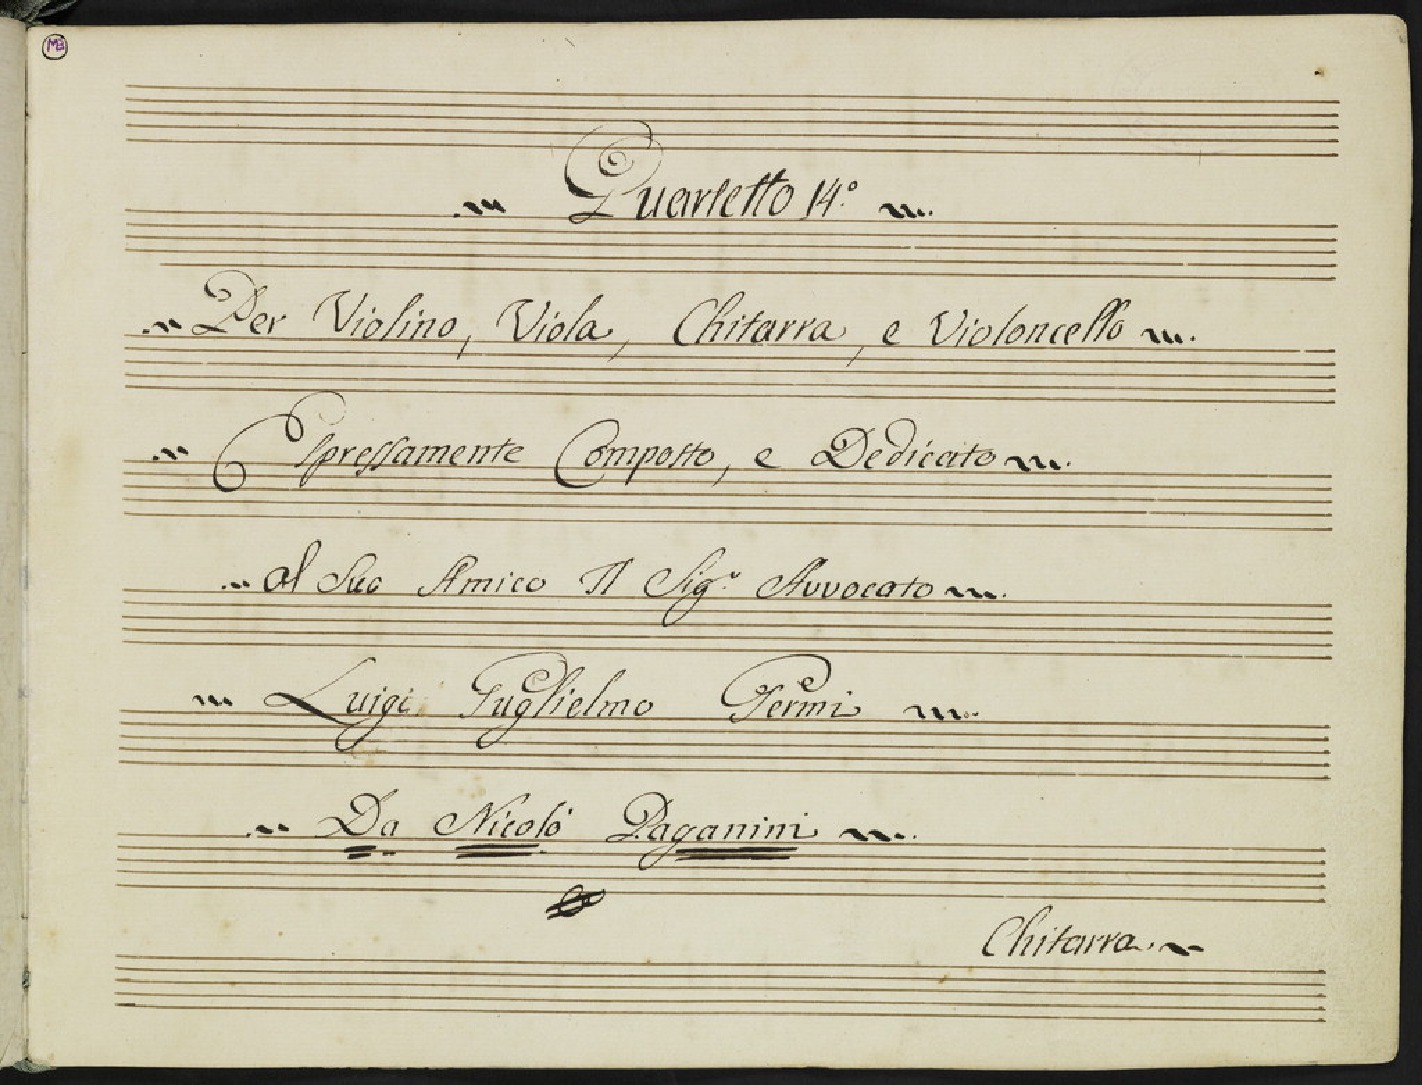 Quartetto 14.º
Per Violino, Viola, Chitarra, e Violoncello
Espressamente Composto, e Dedicato
al Suo Amico Il Sig.r Avvocato
Luigi Guglielmo Germi
Da Nicolò Paganini
Chitarra